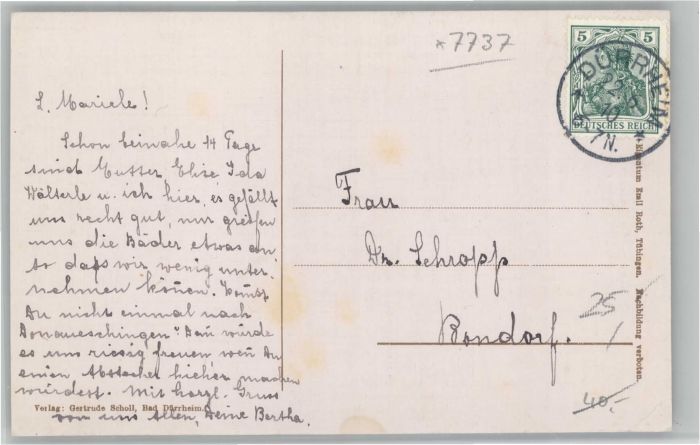 *7737
5 5
DEUTSCHES REICH
DÜRRHEIM
10
6-7N.
L. Mariele!
Schon beinahe 14 Tage
sind Mutter, Elise, Ida
Wälterle u. ich hier, es gefällt
uns recht gut, nur greifen
uns die Bäder etwas an
so dass wir wenig unter-
nehmen können. Komst
Du nicht einmal nach
Donaueschingen? Dan würde
es uns riesig freuen, wen Du
einen Abstecher hieher machen
würdest. Mit herzl. Gruss
von uns Allen, Deine Bertha.
Frau
Dr. Schropp
Bondorf.
25
40.-
Verlag: Gertrude Scholl, Bad Dürrheim.
Eigentum Emil Roth, Tübingen. Nachbildung verboten.